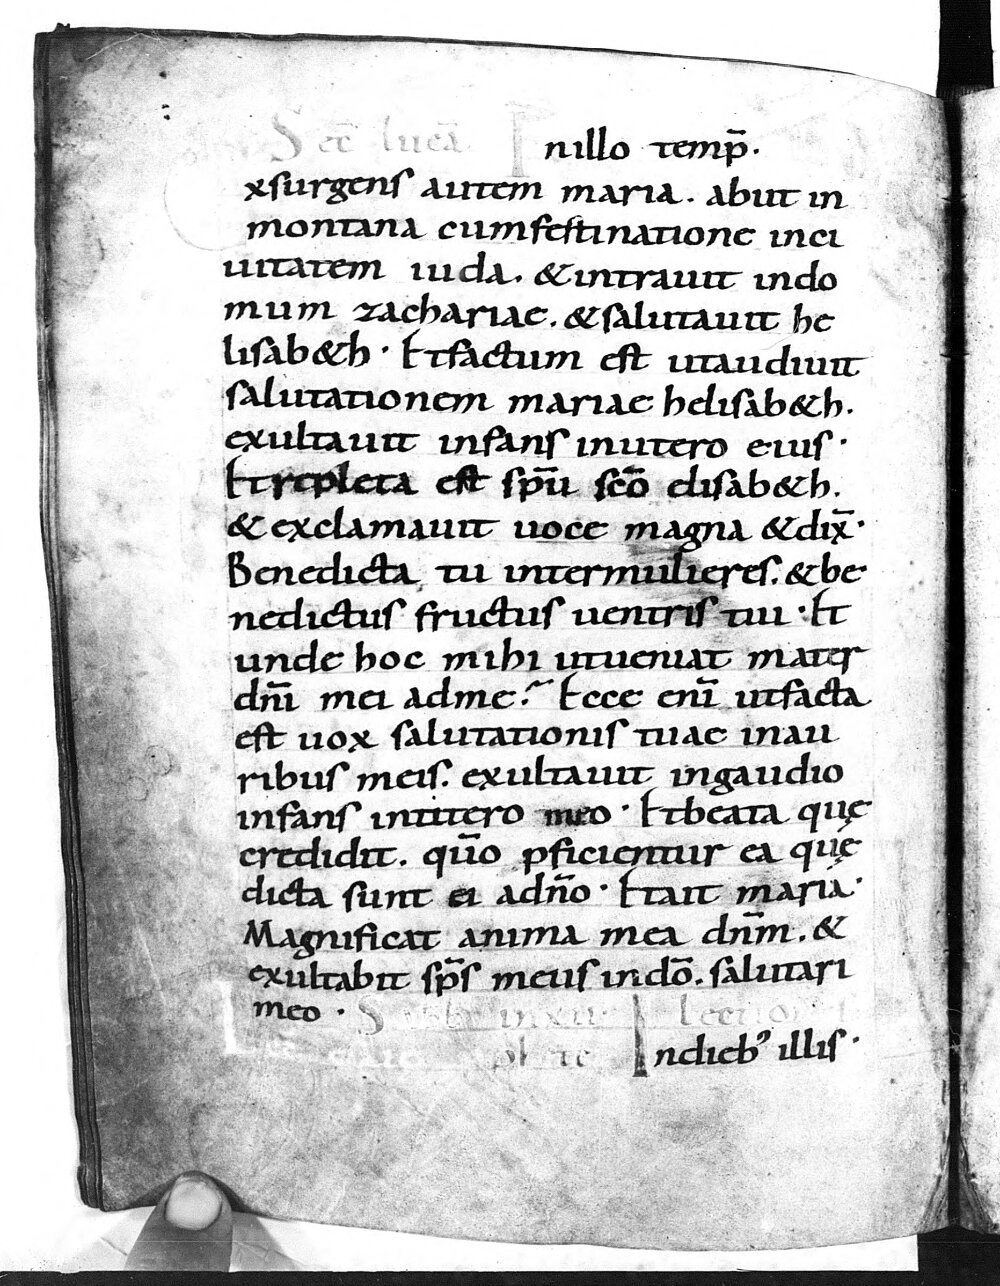 Sec̅ lucā Inillo temp̅.
xsurgens autem maria. abiit in
montana cumfestinatione inci
uitatem iuda. &intrauit indo
mum zachariae. &salutauit he
lisab&h. Etfactum est utaudiuit
salutationem mariae helisab&h.
exultauit infans inutero eius.
Etrepleta est spu̅ sco̅ elisab&h.
& exclamauit uoce magna &dix̅.
Benedicta tu intermulieres. &be
nedictus fructus uentris tui. Et
unde hoc mihi utueniat mater
dn̅i mei adme? Ecce eni̅ utfacta
est uox salutationis tuae inau
ribus meis. exultauit ingaudio
infans intitero meo. Etbeata quę
credidit. quo̅ pficientur ea quę
dicta sunt ei adn̅o. Etait maria.
Magnificat anima mea dn̅m. &
exultabit sp̅s meus indo̅. salutari
meo. Sabb inxii lectio
Indieb' illis.